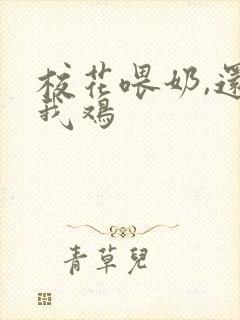 校花喂奶,還
我鸡
青草兒